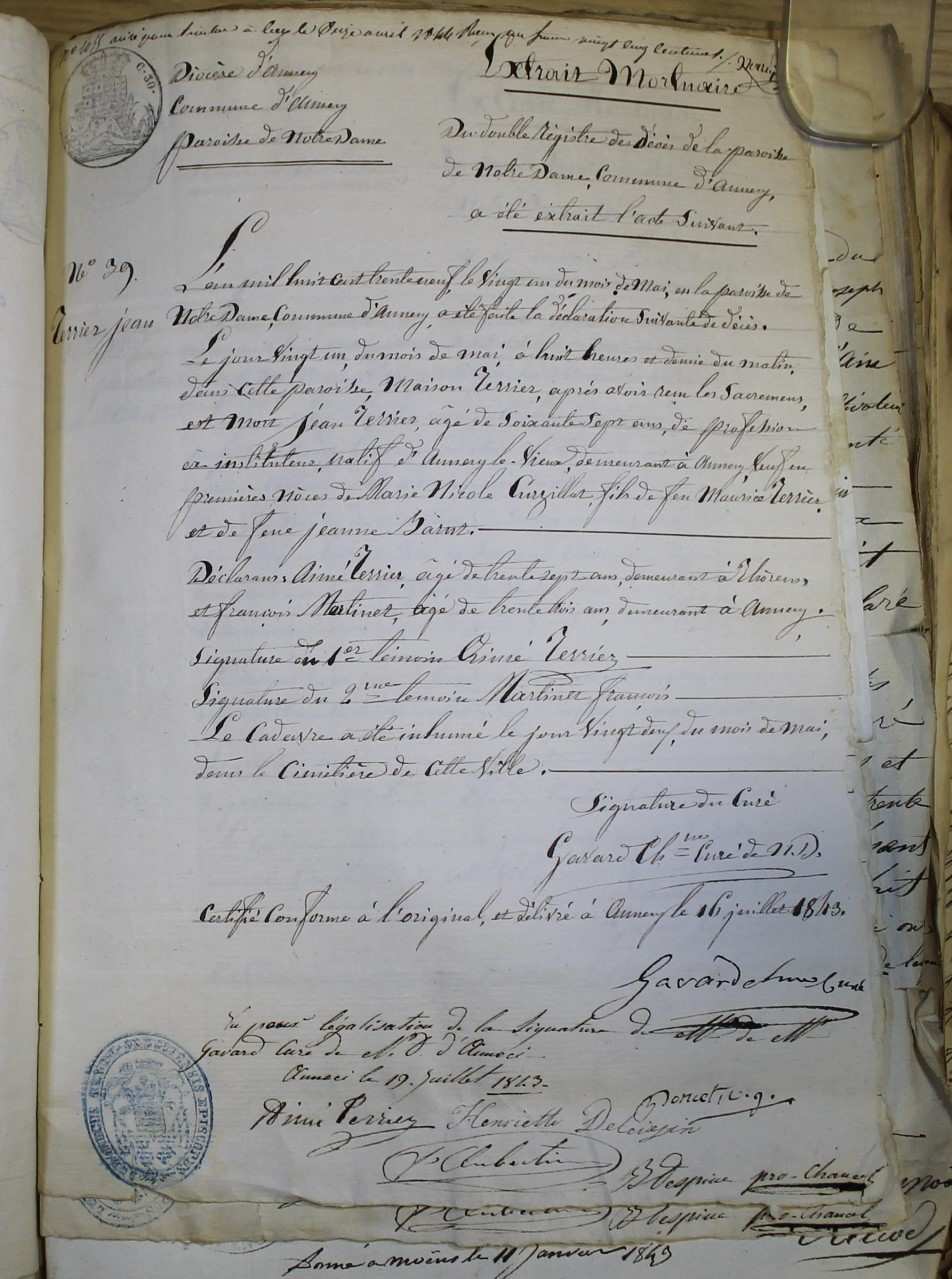 Diocèse d'Annecy
Commune d'Annecy
paroisse de Notre Dame
Extrait Mortuaire
Du double Régistre des Décès de la paroisse
de Notre Dame, Commune d'Annecy,
a été extrait l'acte Suivant.
N° 39.
Terrier jean
L'an mil huit cent trente neuf, le Vingt un du mois de Mai, en la paroisse de
Notre Dame, Commune d'Annecy, a été faite la déclaration Suivante de décès.
Le jour Vingt un, du mois de mai, à huit heures et demie du matin,
dans cette paroisse, Maison Terrier, après avoir reçu les Sacremens,
est mort jean Terrier, âgé de Soixante Sept ans, de profession
ex instituteur, natif d'Annecy-le-Vieux, demeurant à Annecy Veuf en
premières nôces de Marie Nicole fils de feu Maurice Terrier
et de feue jeanne
Déclarans, Aimé Terrier, âgé de trente sept ans, demeurant à Thorens,
et françois Martinet, âgé de trente trois ans, demeurant à Annecy.
Signature du 1er témoin Aimé Terrier
Signature du 2me temoin Martinet françois
Le Cadavre a été inhumé le jour Vingt deux, du mois de Mai,
dans le Cimetière de Cette Ville.
Signature du Curé
Gavard Chne Curé de N.D.
Certifié Conforme à l'original, et délivré à Annecy le 16 juillet 1843.
Gavard chne Curé
Vu pour légalisation de la Signature de
Gavard Curé de N. D. d'Anneci
Anneci le 19. Juillet 1843.
Aimé Terrier Henriette
Aubertin
Despine pro-Chancel
Despine pro-Chancel
Donné à moëns le 11 Janvier 1843